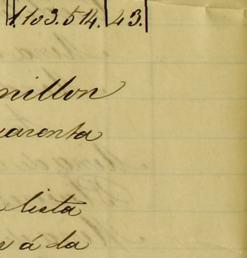 1.103.514. 43.
millon
uarenta
lista
á la